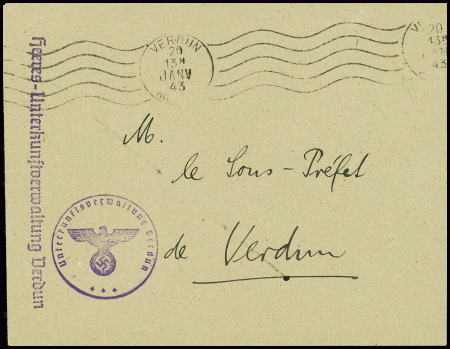 VERDUN
20
13H
JANV
43
20
13H
43
Heeres-Unterkunftverwaltung Verdun
M.
le Sous-Préfet
de Verdun
Unterkunftsverwaltung Verdun